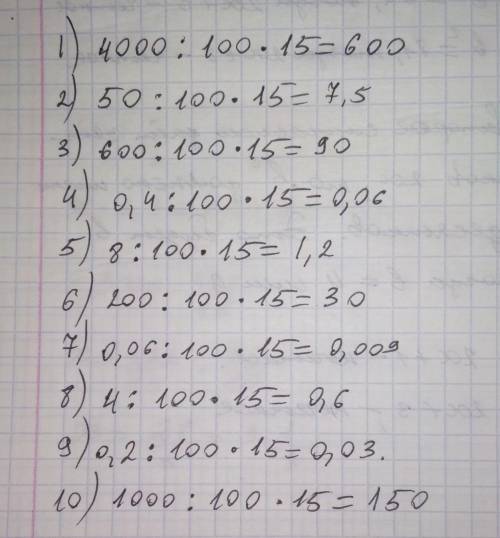 1) 4000 : 100 · 15 = 600
2) 50 : 100 · 15 = 7,5
3) 600 : 100 · 15 = 90
4) 0,4 : 100 · 15 = 0,06
5) 8 : 100 · 15 = 1,2
6) 200 : 100 · 15 = 30
7) 0,06 : 100 · 15 = 0,009
8) 4 : 100 · 15 = 0,6
9) 0,2 : 100 · 15 = 0,03.
10) 1000 : 100 · 15 = 150